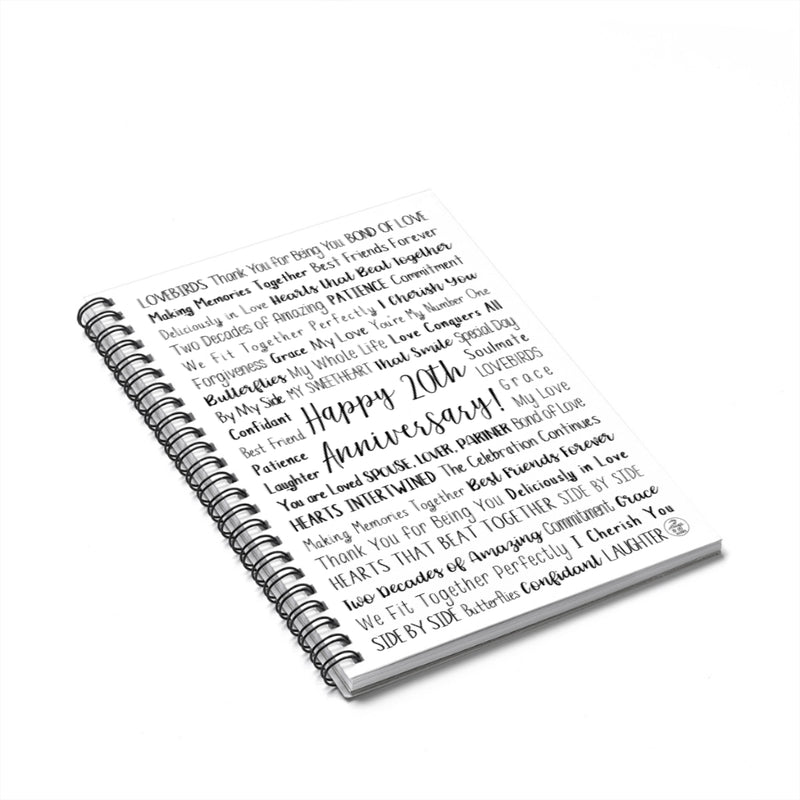 LOVEBIRDS Thank You for Being You BOND OF LOVE
Making Memories Together Best Friends Forever
Deliciously in Love Hearts that Beat Together
Two Decades of Amazing PATIENCE Commitment
We Fit Together Perfectly I Cherish You
Forgiveness Grace My Love You're My Number One
Butterflies My Whole Life Love Conquers All
By My Side MY SWEETHEART that Smile Special Day
Confidant Happy 20th Soulmate
Best Friend LOVEBIRDS
Patience Anniversary! Grace
Laughter My Love
You are Loved SPOUSE, LOVER, PARTNER Bond of Love
HEARTS INTERTWINED The Celebration Continues
Making Memories Together Best Friends Forever
Thank You for Being You Deliciously in Love
HEARTS THAT BEAT TOGETHER SIDE BY SIDE
Two Decades of Amazing Commitment Grace
We Fit Together Perfectly I Cherish You
SIDE BY SIDE Butterflies Confidant LAUGHTER